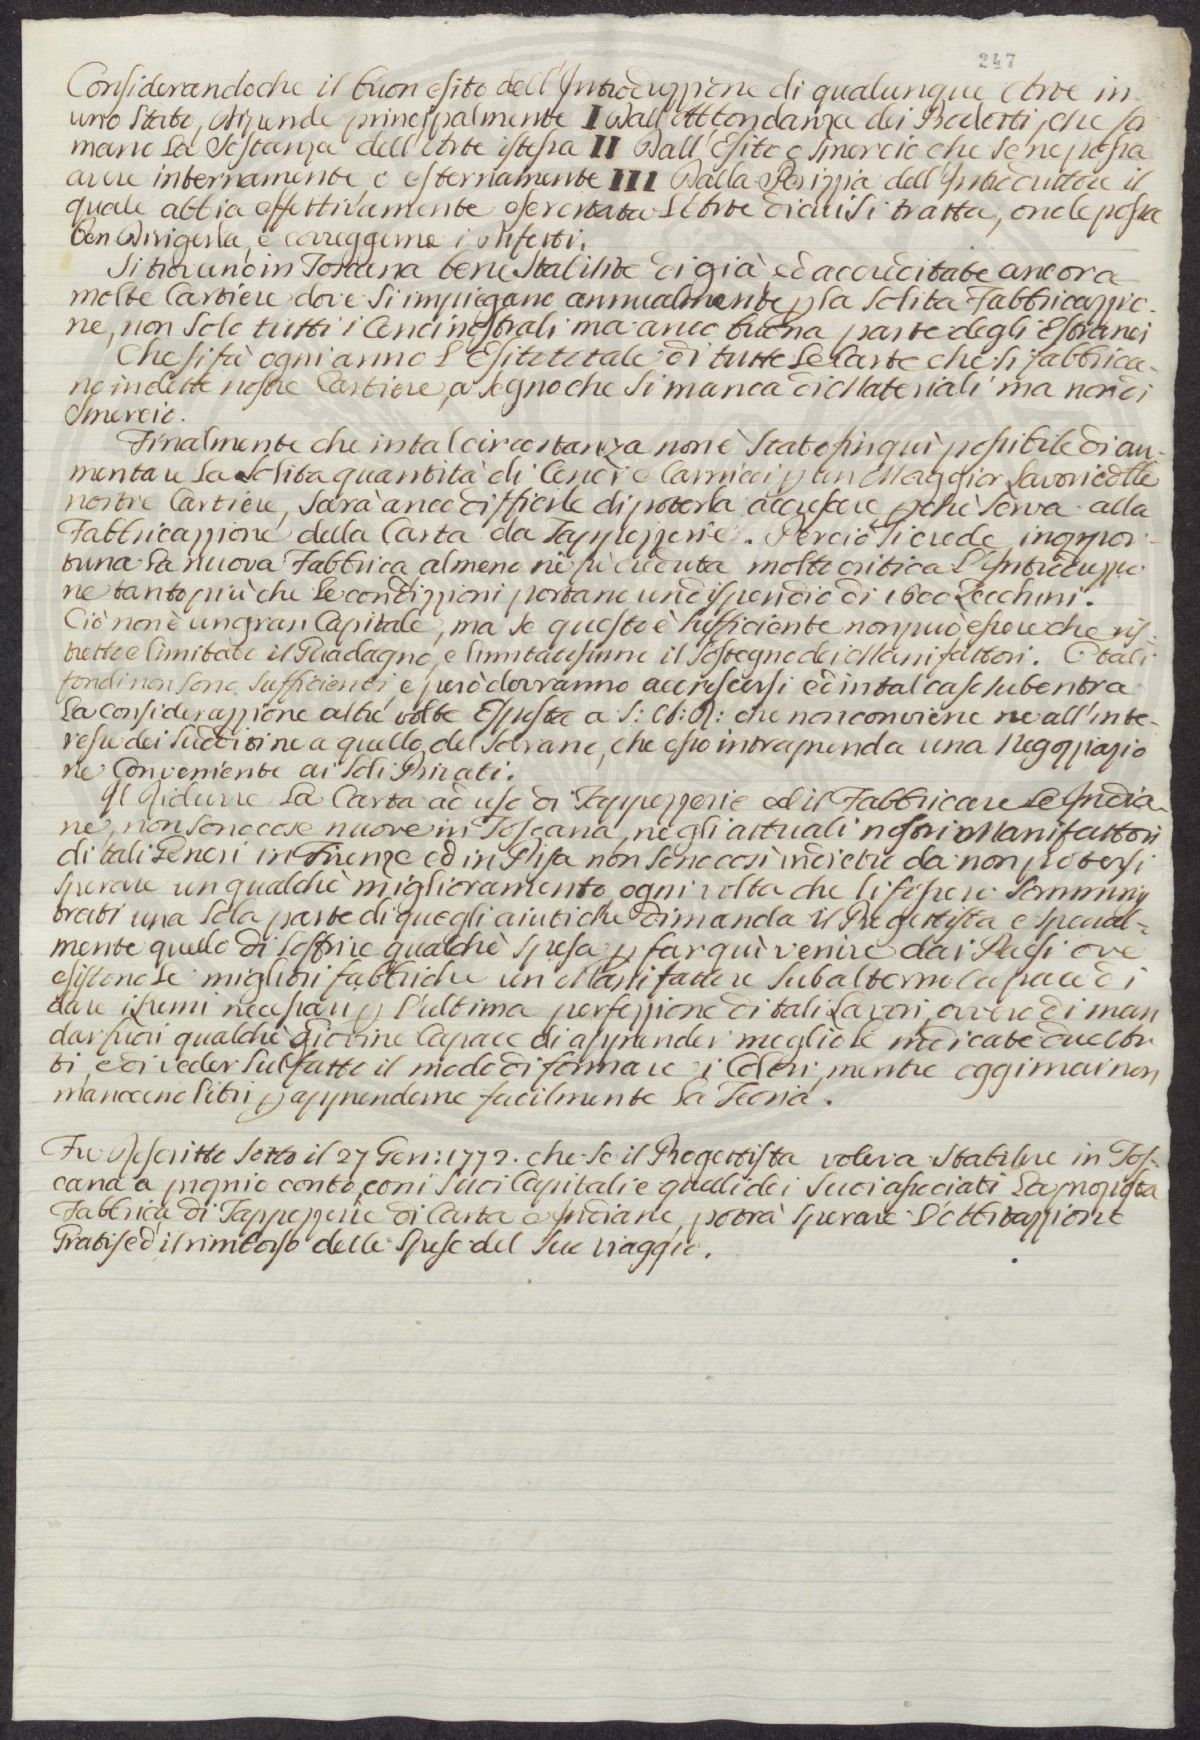 247
Considerandoche il buon esito dell'Introduzzione di qualunque Arte in
uno Stato, dipende principalmente I Dall'Abbondanza dei Prodotti, che for
mano La Sostanza dell'Arte istessa II Dall'Esito e Smercio che se ne possa
avere internamente e esternamente III Dalla Perizzia dell'Introduttore il
quale abbia effettivamente esercitata L'Arte di cui si tratta, onde possa
ben dirigerla, e correggerne i difetti.
Si trovano in Toscana bene Stabilite di già, ed accreditate ancora
molte Cartiere dove Si impiegano annualmente p la Solita Fabbricazzio-
ne, non Solo tutti i Cenci nostrali ma anco buona parte degli Estranei
Che si fà ogni anno L'Esito totale di tutte Le Carte che si fabbrica-
no in dette nostre Cartiere, a segno che Si manca di Materiali ma non di
Smercio.
Finalmente che in tal circostanza non è Stato fin qui possibile di au-
mentare La Solita quantità di Cenci e Carnicci p un Maggior Lavorio delle
nostre Cartiere, Sarà anco difficile di poterla accrescere pchè Serva alla
Fabbricazzione della Carta da Tappezzerie. Perciò Si crede inoppor-
tuna La nuova Fabbrica, almeno ne fù creduta molto critica L'Introduzzio
ne tanto più che Le condizzioni portano un dispendio di 1600 Zecchini.
Ciò non è un gran Capitale, ma se questo è Sufficiente non può essere che ris-
tretto e limitato il Guadagno, e limitatissimo il Sostegno dei Manifattori. O tali
fondi non Sono Sufficienti e però dovranno accrescersi ed in tal caso Subentra
La considerazzione altre volte Esposta a S: A: R: che non conviene ne all'inte-
resse dei Sudditi ne a quello del Sovrano, che esso intraprenda una Negozziazio
ne Conveniente ai Soli Privati.
Il Ridurre La Carta ad uso di Tappezzerie ed il Fabbricare Le Indïa
ne, non Sono cose nuove in Toscana, ne gli attuali nostri Manifattori
di tali Generi in Firenze ed in Pisa non Sono così indietro da non potersi
Sperare un qualche miglioramento ogni volta che li fossero Sommini
trati una Sola parte di quegli aiuti che dimanda il Progettista e Special-
mente quello di Soffrire qualchè Spesa p far quì venire dai Paesi ove
esistono Le migliori fabbriche un Manifattore Subalterno Capace di
dare i Lumi necessari p L'ultima perfezzione di tali Lavori, ovvero di man
dar fuori qualche Giovine Capace di apprender meglio Le indicate due Ar
ti, e di veder Sul fatto il modo di formare i Colori, mentre oggimai non
mancano Libri p apprenderne facilmente La Teoria.
Fu Rescritto Sotto il 27 Gen: 1772. che Se il Progettista voleva Stabilire in Tos-
cana a proprio conto, con i Suoi Capitali e quelli dei Suoi associati La proposta
Fabbrica di Tappezzerie di Carta e Indiane, potrà Sperare L'Abitazzione
Gratis ed il rimborso delle Spese del Suo viaggio.